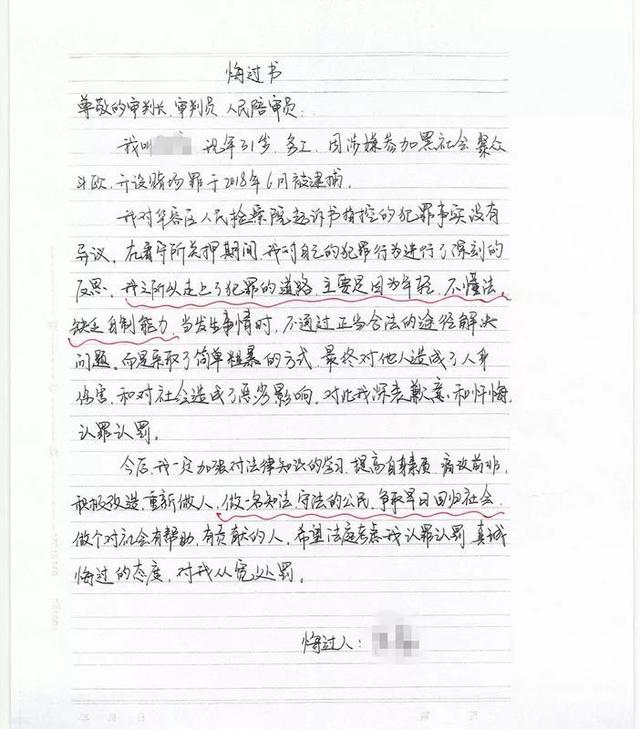 悔过书
尊敬的审判长、审判员、人民陪审员:
我叫 现年31岁, 务工, 因涉嫌参加黑社会 聚众
斗殴, 开设赌场罪于2018年6月被逮捕。
我对华容区人民检察院起诉书指控的犯罪事实没有
异议。在看守所关押期间, 我对自己的犯罪行为进行了深刻的
反思。我之所以走上了犯罪的道路, 主要是因为年轻, 不懂法,
缺乏自制能力, 当发生事情时, 不通过正当合法的途径解决
问题, 而是采取了简单粗暴的方式, 最终对他人造成了人身
伤害, 和对社会造成了恶劣影响, 对此我深表歉意和忏悔,
认罪认罚。
今后, 我一定加强对法律知识的学习, 提高自身素质, 痛改前非,
积极改造, 重新做人, 做一名知法、守法的公民, 争取早日回归社会,
做个对社会有帮助, 有贡献的人, 希望法庭考虑我认罪认罚, 真诚
悔过的态度, 对我从宽处罚。
悔过人:
年 月 日
第 页